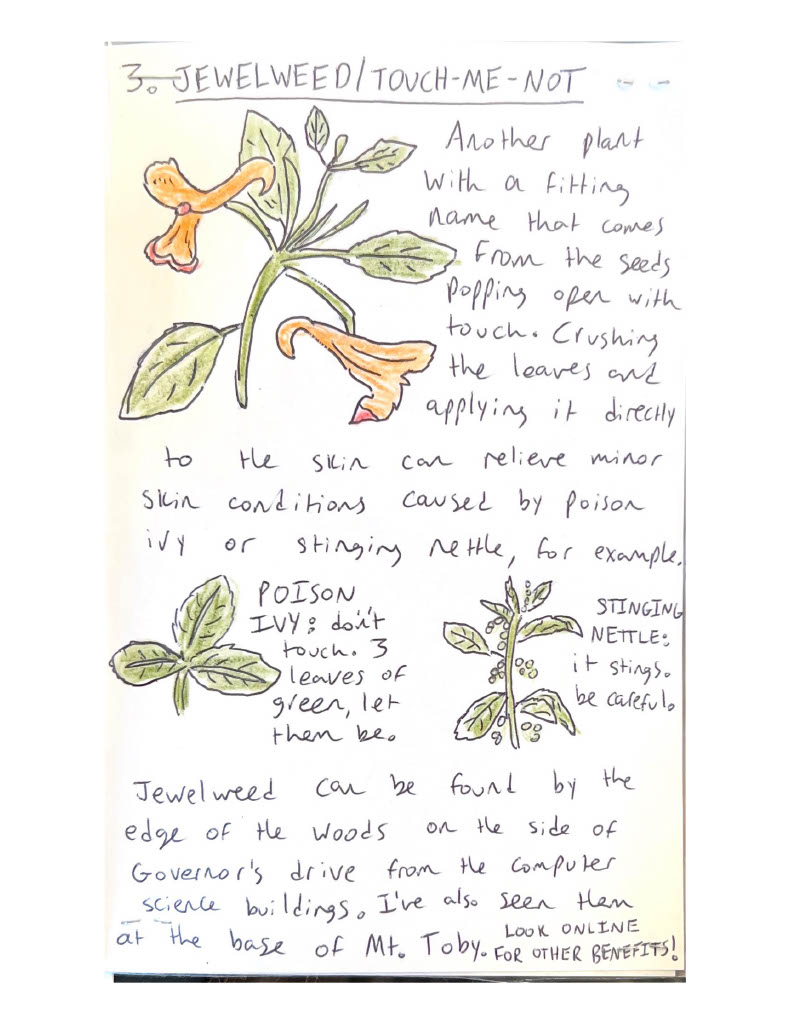 3. JEWELWEED/TOUCH-ME-NOT
Another plant
with a fitting
name that comes
from the seeds
popping open with
touch. Crushing
the leaves and
applying it directly
to the skin can relieve minor
skin conditions caused by poison
ivy or stinging nettle, for example.
POISON
IVY: don't
touch. 3
leaves of
green, let
them be.
STINGING
NETTLE:
it stings.
be careful.
Jewelweed can be found by the
edge of the woods on the side of
Governor's drive from the computer
science buildings. I've also seen them
at the base of Mt. Toby.
LOOK ONLINE
FOR OTHER BENEFITS!